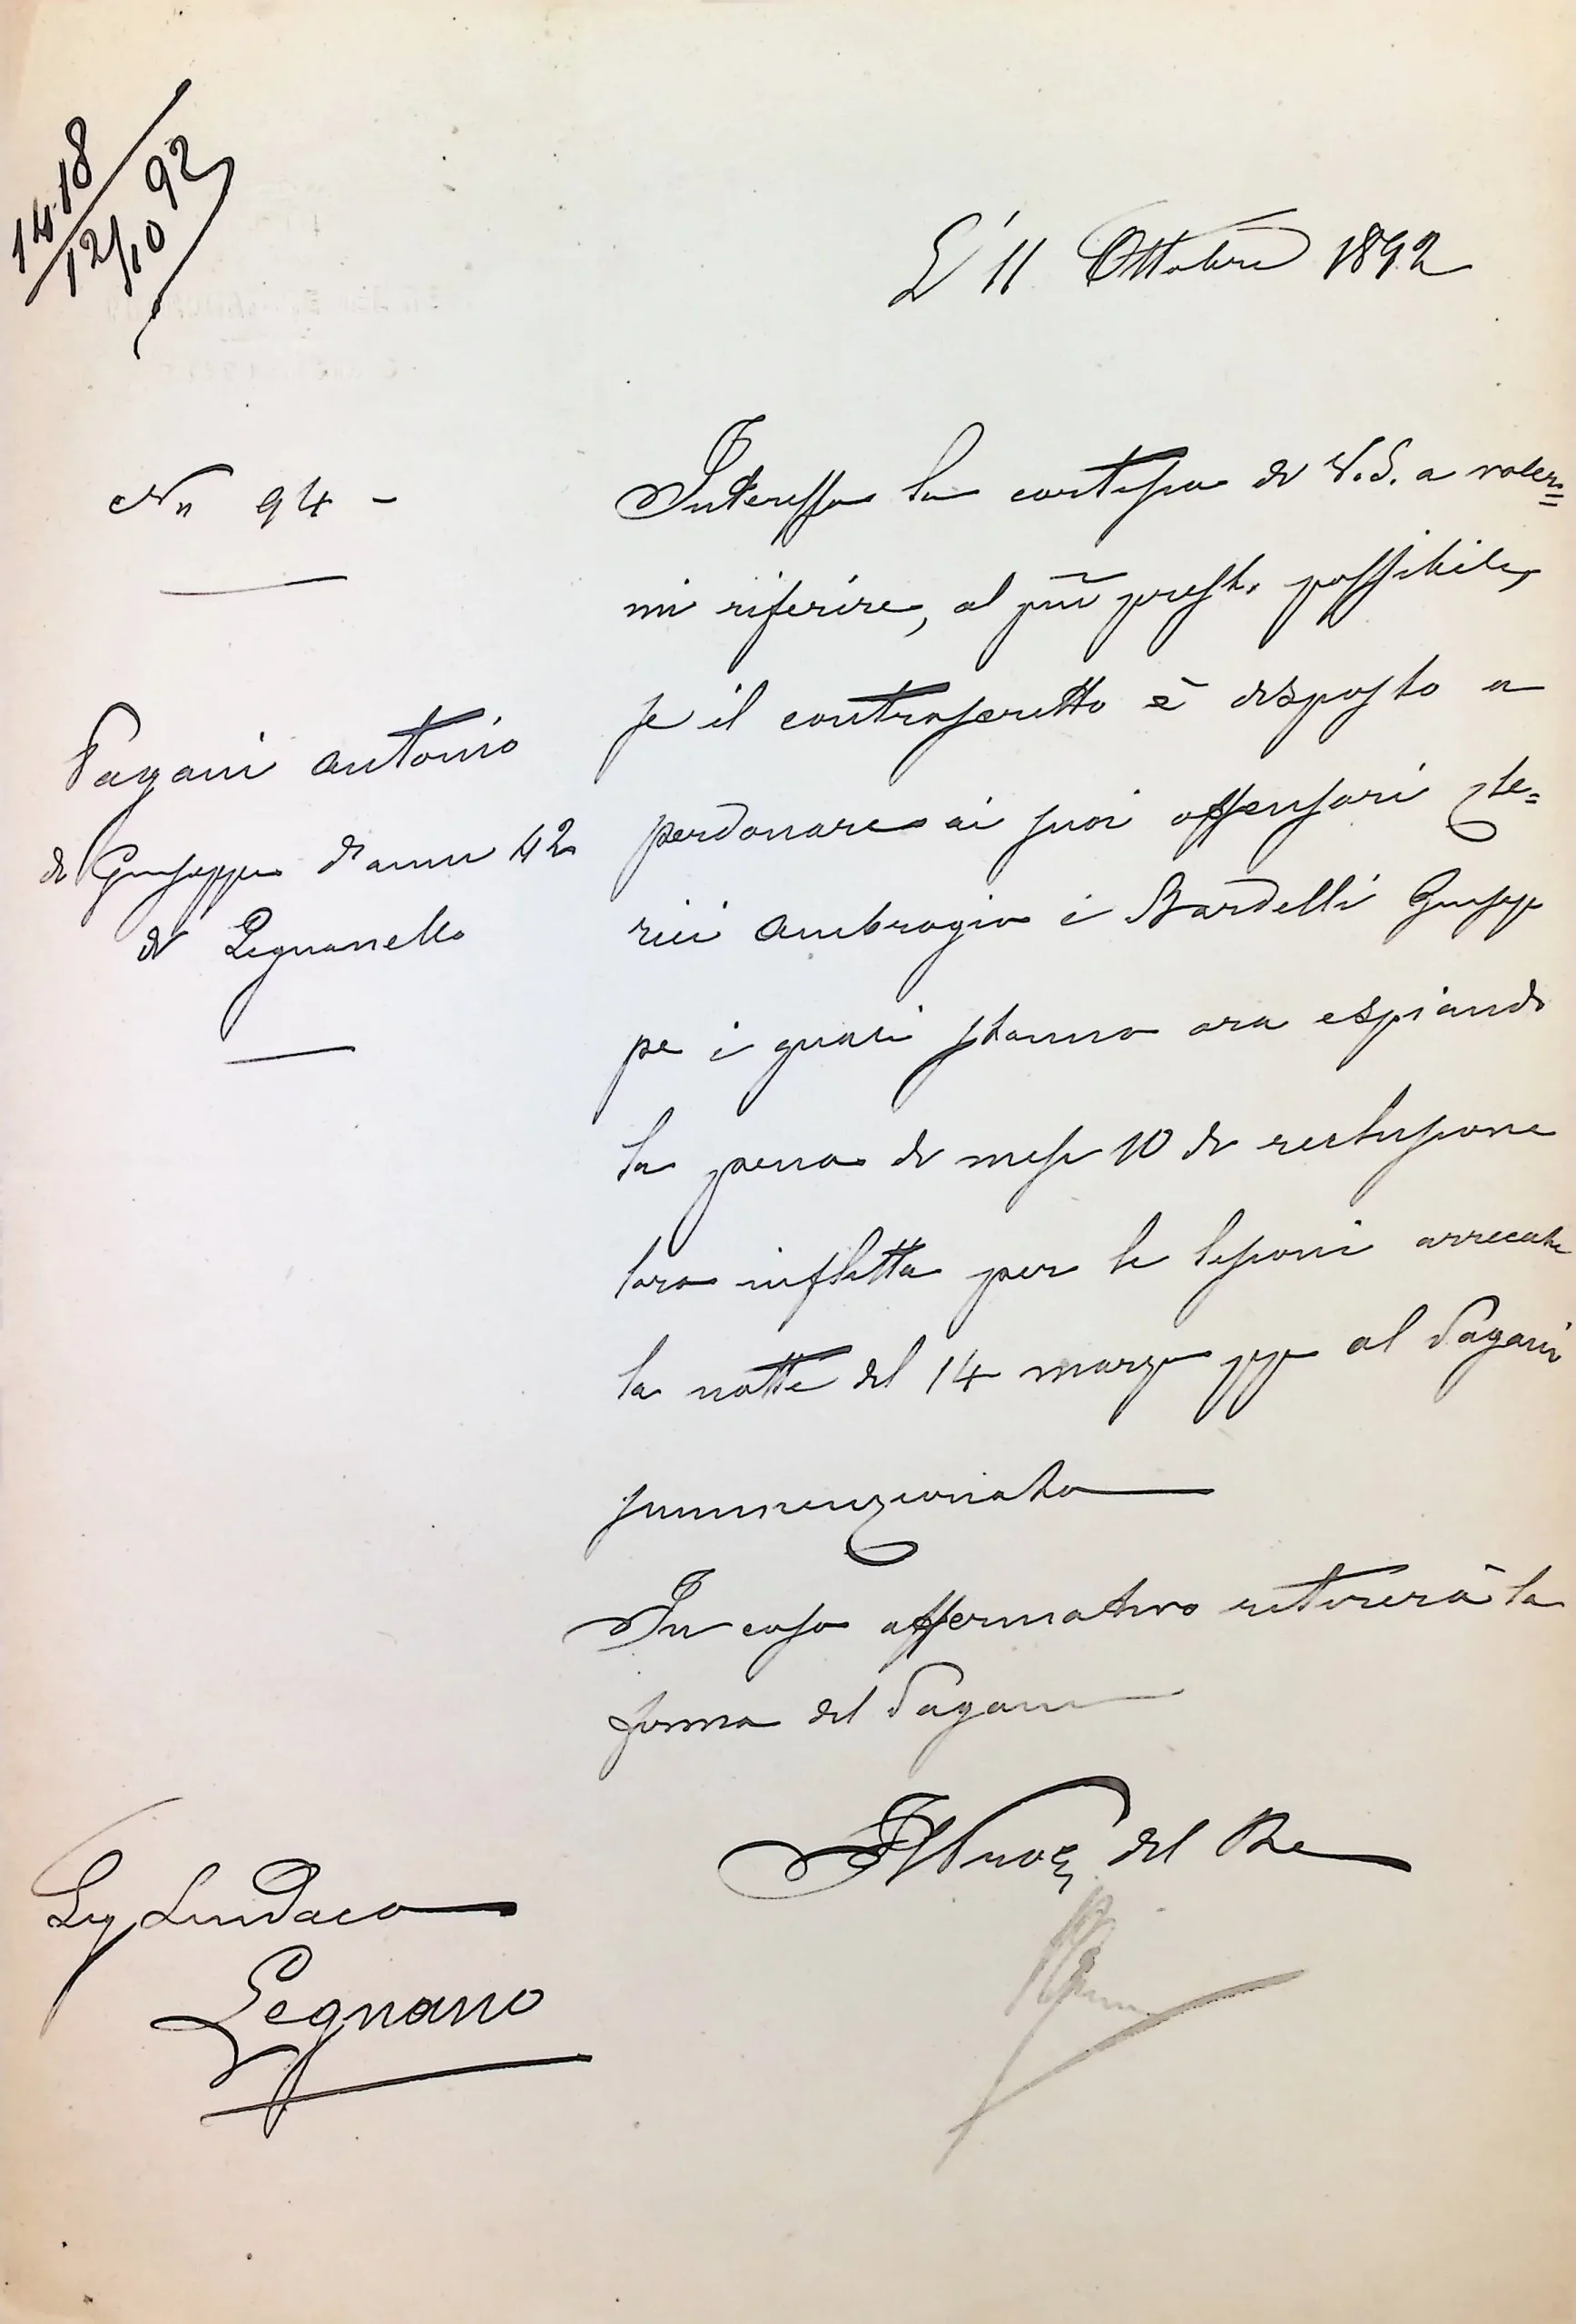 1418
12/10 92
L'11 Ottobre 1892
Nn 94 -
Interessa la cortesia di V.S. a voler=
mi riferire, al più presto possibile,
se il controscritto è disposto a
Pagani Antonio
perdonare ai suoi offensori Cle=
di Giuseppe d'anni 42
rici Ambrogio e Bardelli Giusep
di Legnanello
pe i quali stanno ora espiando
la pena di mesi 10 di reclusione
loro inflitta per le lesioni arrecate
la notte del 14 marzo pp al Pagani
summenzionato
In caso affermativo ritirerà la
firma del Pagani
Il Proc del Re
Sig Sindaco
Legnano